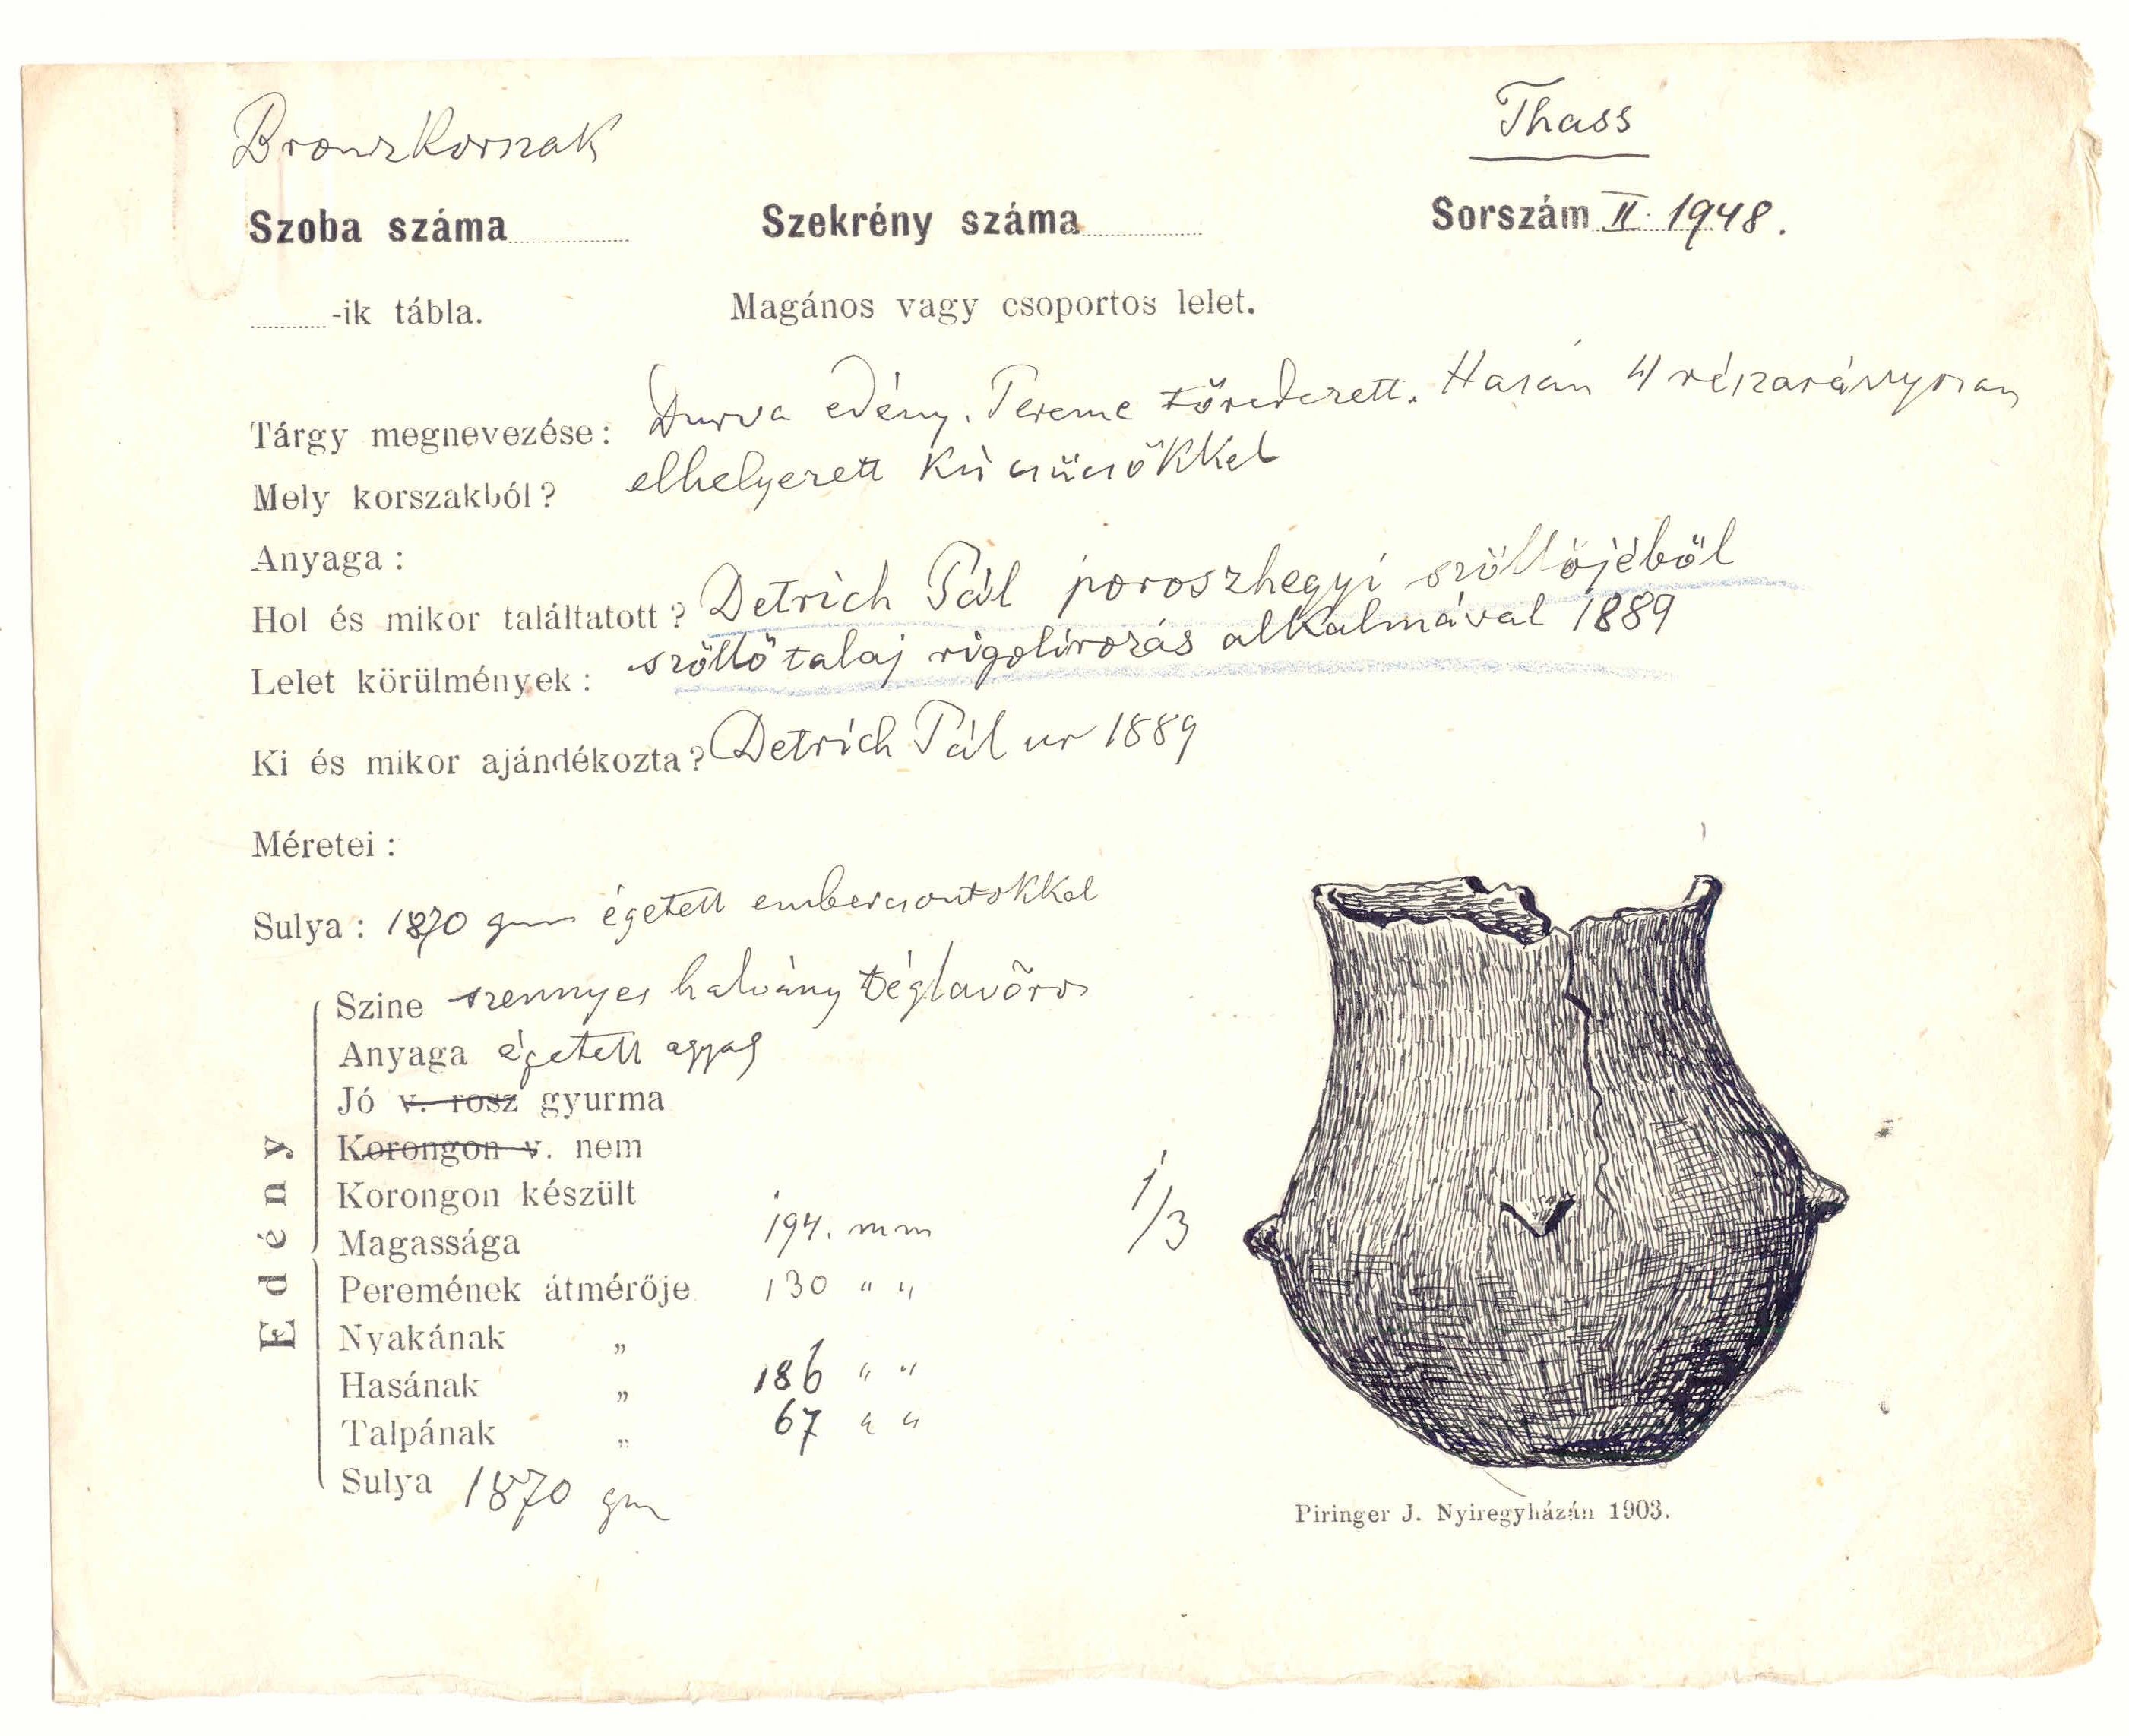 Bronzkorszak
Thass
Szoba száma
Szekrény száma
Sorszám II. 1948.
-ik tábla.
Magános vagy csoportos lelet.
Tárgy megnevezése: Durva edény. Pereme töredezett. Hasán 4 részarányosan
Mely korszakból? elhelyezett kis csücsőkkel
Anyaga:
Hol és mikor találtatott? Detrich Pál poroszhegyi szőllőjéből
Lelet körülmények: szőllőtalaj rigolirozás alkalmával 1889
Ki és mikor ajándékozta? Detrich Pál ur 1889
Méretei:
Sulya: 1870 gm égetett embercsontokkal
Edény
Szine szennyes halvány téglavörös
Anyaga égetett agyag
Jó v. rosz gyurma
Korongon v. nem
Korongon készült
Magassága 194. mm
Peremének átmérője 130 " "
Nyakának "
Hasának " 186 " "
Talpának " 67 " "
Sulya 1870 gm
1/3
Piringer J. Nyiregyházán 1903.